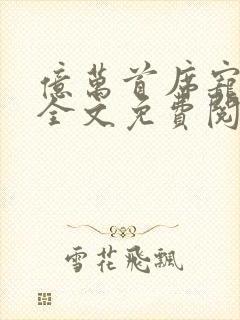 億萬首席寵
全文免費閱
雪花飛飄